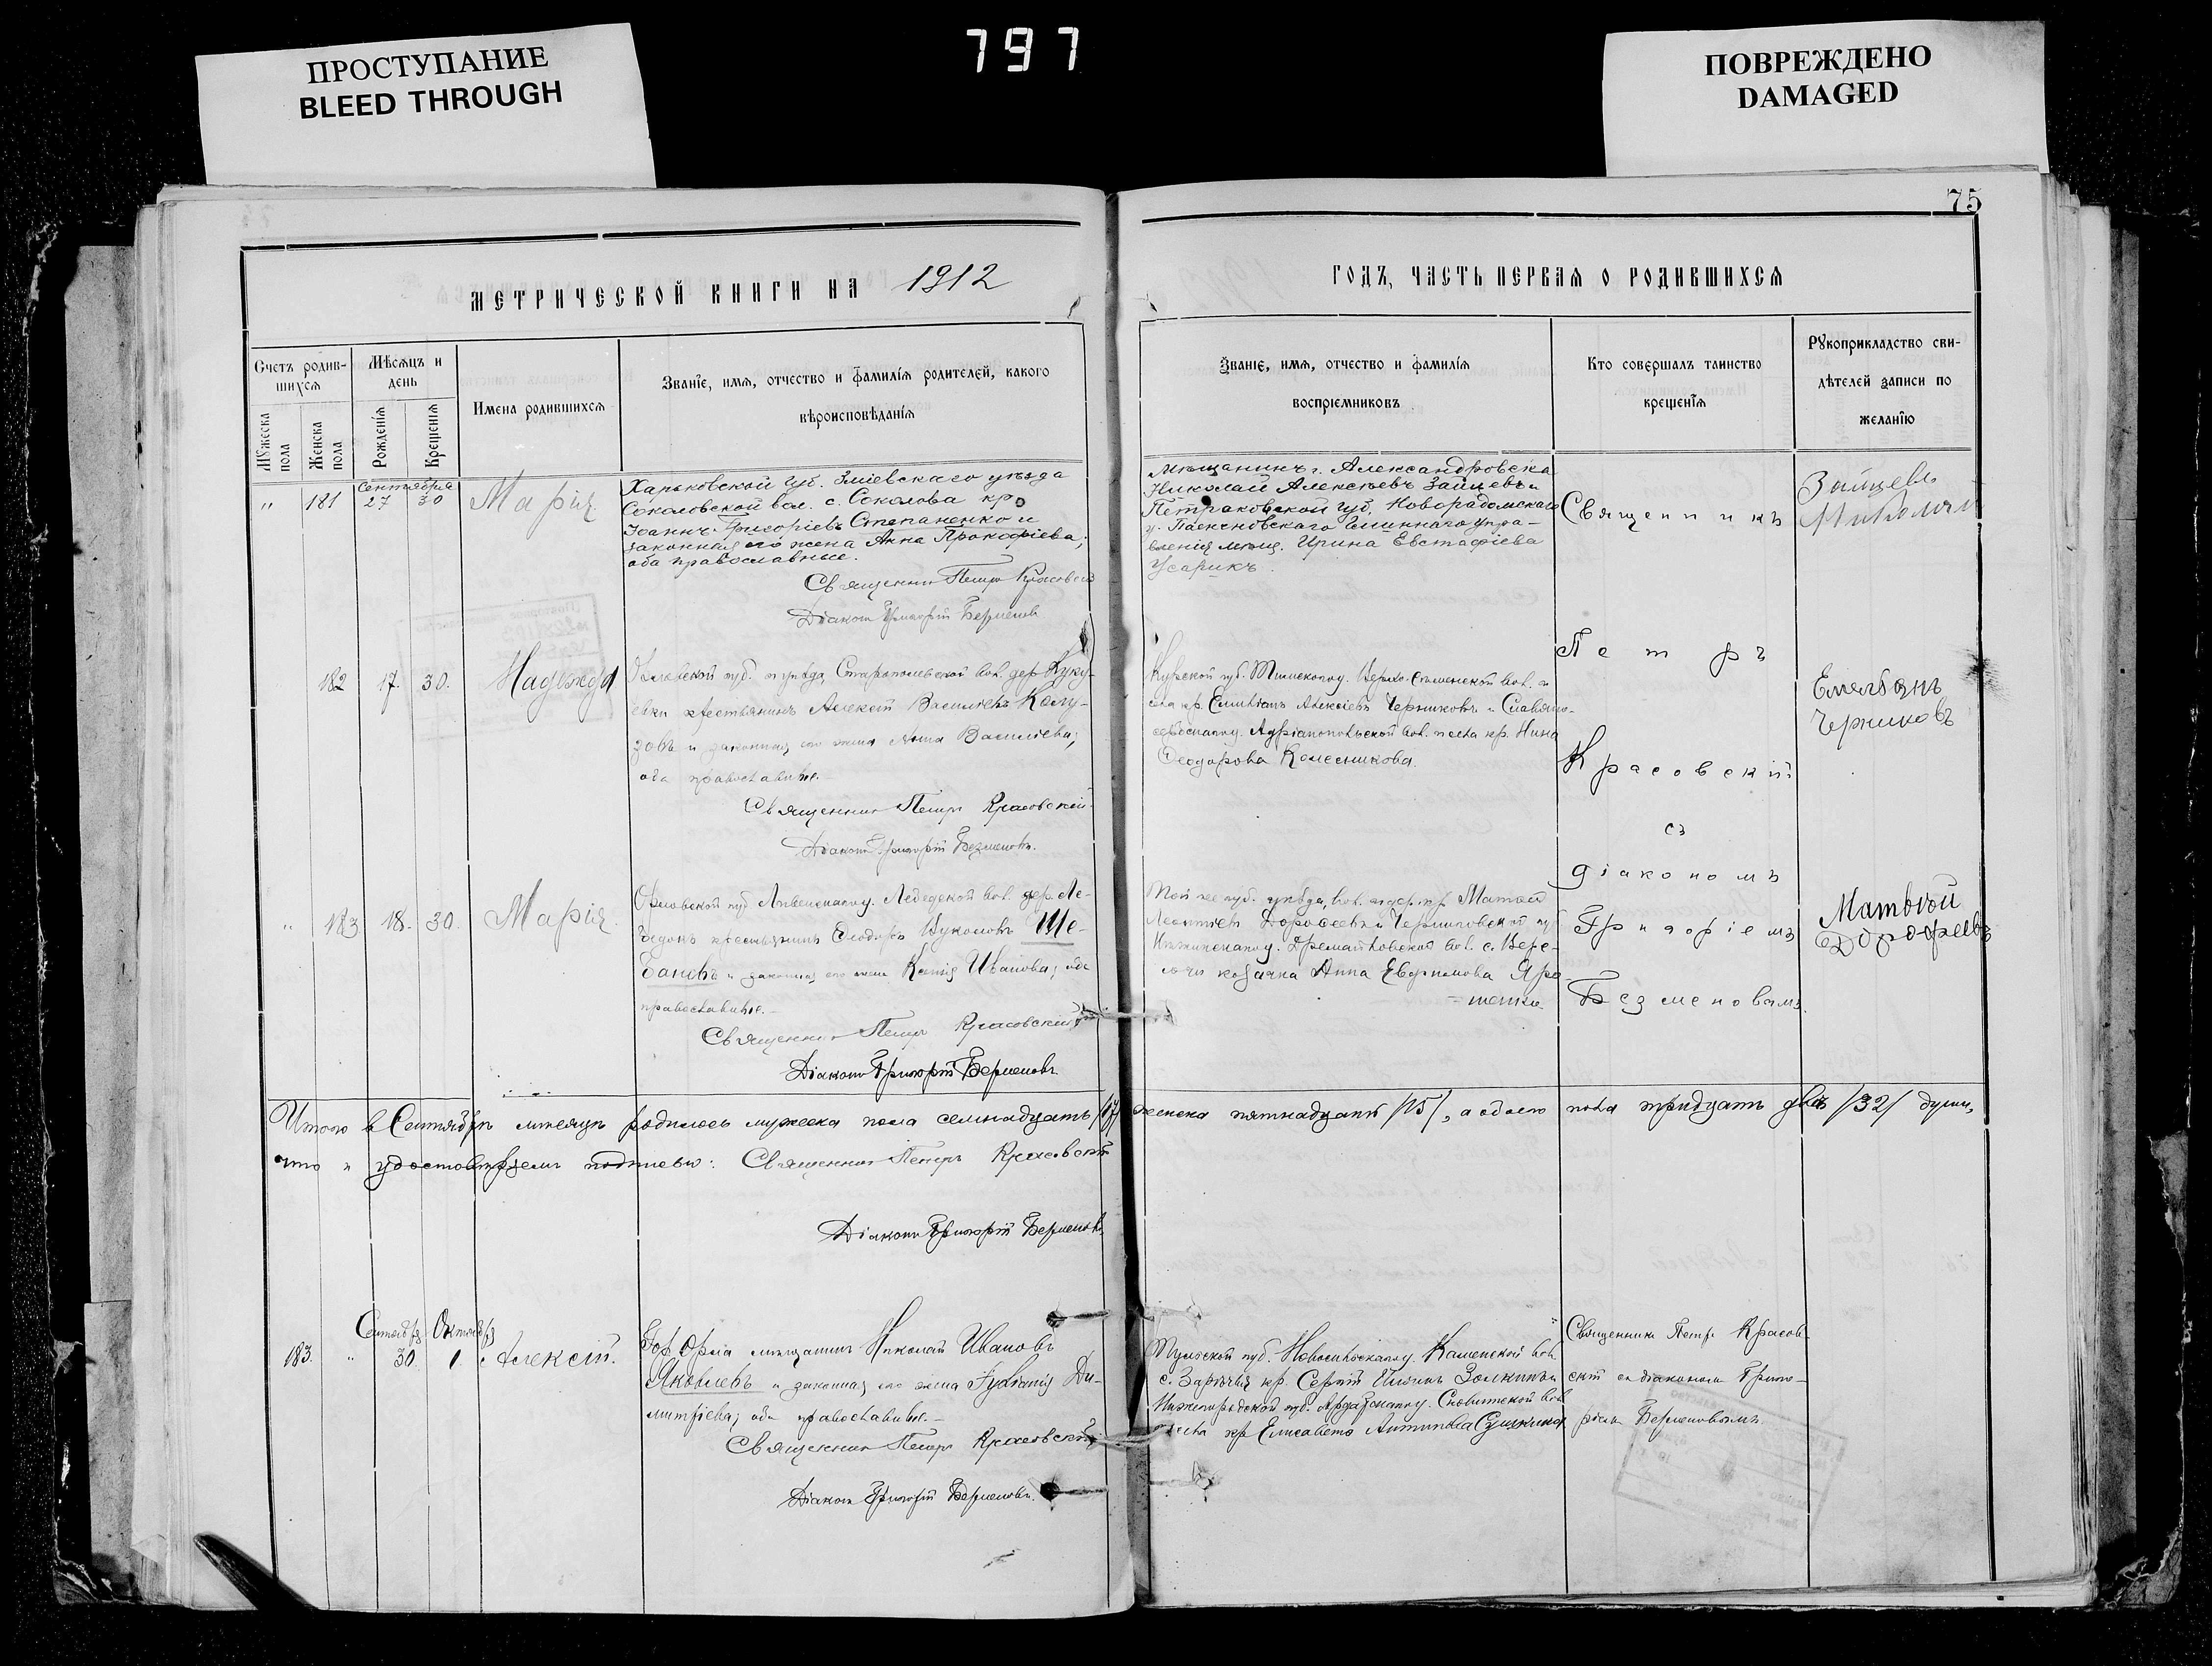 ПРОСТУПАНИЕ
BLEED THROUGH
797
ПОВРЕЖДЕНО
DAMAGED
75
МЕТРИЧЕСКОЙ КНИГИ НА 1912
ГОДЪ, ЧАСТЬ ПЕРВАЯ О РОДИВШИХСЯ
Счетъ родив-
шихся
Мѣсяцъ и
день
Мужеска
пола
Женска
пола
Рожденія
Крещенія
Имена родившихся
Званіе, имя, отчество и фамилія родителей, какого
вѣроисповѣданія
Званіе, имя, отчество и фамилія
воспріемниковъ
Кто совершалъ таинство
крещенія
Рукоприкладство сви-
дѣтелей записи по
желанію
Сентября
" 181 27 30 Марія
Харьковской губ. Зміевскаго уѣзда
Соколовской вол. с. Соколова кр.
Іоаннъ Григоріевъ Степаненко и
законная его жена Анна Прокофіева,
оба православные.
Священникъ Петръ Красовскій
Діаконъ Григорій Безменовъ
Мѣщанинъ г. Александровска
Николай Алексѣевъ Зайцевъ и
Петраковской губ. Новорадомскаго
у. Гминнаго упра-
вленія мѣщ. Ирина Евстафіева
Усарикъ.
Зайцевъ
Николай
182 17. 30. Надежда
губ. и уѣзда, вол. дер. Куку-
евки крестьянинъ Алексѣй Василіевъ Калу-
зовъ и законная его жена Анна Василіева,
оба православные.
Священникъ Петръ Красовскій
Діаконъ Григорій Безменовъ.
Курской губ. Тимскаго у. вол. и
села кр. Емиліанъ Алексіевъ Черниковъ и Славяно-
сербскаго у. Адріанопольской вол. и села кр. Нина
Ѳеодорова Колесникова.
Емельянъ
Черниковъ
" 183 18. 30. Марія
Орловской губ. Ливенскаго у. вол. дер. Ле-
крестьянинъ Ѳеодоръ Вуколовъ Ше-
бановъ и законная его жена Ксенія Иванова, оба
православные.
Священникъ Петръ Красовскій
Діаконъ Григорій Безменовъ
Той же губ. уѣзда, вол. и дер. кр. Матѳей
Леонтіевъ Дорофеевъ и Черниговской губ.
Нѣжинскаго у. вол. с. Вере-
козачка Анна Евфимова Яро-
шенко
Матвѣй
Дорофеевъ
Священникъ
Петръ
Красовскій
съ
діакономъ
Григоріемъ
Безменовымъ.
Итого въ Сентябрѣ мѣсяцѣ родилось мужеска пола семнадцать /17/ женска пятнадцать /15/, а обоего пола тридцать двѣ /32/ души,
что и удостовѣряемъ подписью: Священникъ Петръ Красовскій
Діаконъ Григорій Безменовъ
Сентябр. Октябр.
183. " 30. 1. Алексій.
Гор. Орла мѣщанинъ Николай Ивановъ
Яковлевъ и законная его жена Іуліанія Ди-
митріева, оба православные.
Священникъ Петръ Красовскій
Діаконъ Григорій Безменовъ.
Тульской губ. Новосильскаго у. Каменской вол.
с. Зарѣчья кр. Сергій и
Нижегородской губ. Ардатскаго у. вол.
и села кр. Елисавета Антипова
Священникъ Петръ Красов-
скій съ діакономъ Григо-
ріемъ Безменовымъ.